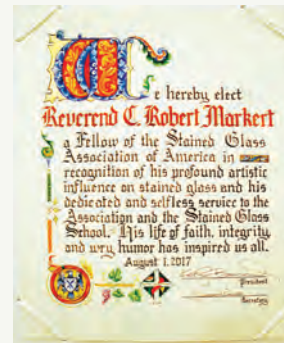 We hereby elect
Reverend C. Robert Markert
a Fellow of the Stained Glass
Association of America in
recognition of his profound artistic
influence on stained glass and his
dedicated and selfless service to the
Association and the Stained Glass
School. His life of faith, integrity,
and wry humor has inspired us all.
August 1, 2017
President
Secretary